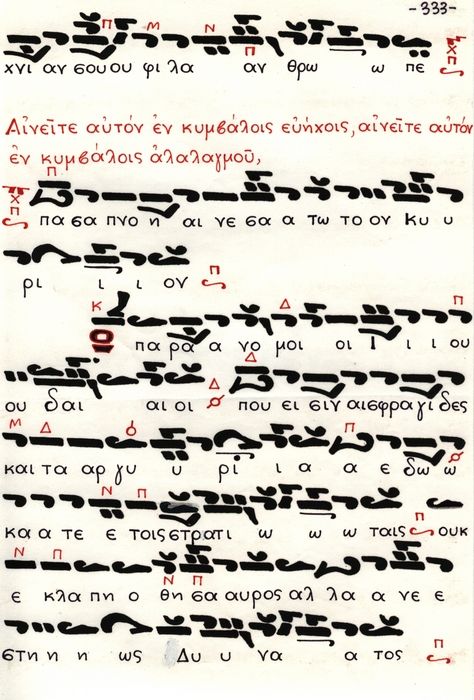 -333-
Π Μ Ν
χνι αν σου ου φι λα αν θρω ω πε
Π
Αἰνεῖτε αὐτόν ἐν κυμβάλοις εὐήχοις, αἰνεῖτε αὐτόν
ἐν κυμβάλοις ἀλαλαγμοῦ,
Π
πα σα πνο η αι νε σα α τω το ον Κυ υ
ρι ι ι ον
Π
Κ Δ Π
Ο πα ρα α νο μοι οι Ι ι ι ου
Δ
ου δαι αι οι Δ που ει σιν αι σφρα γι δες
Μ Δ Π
και τα αρ γυ υ ρι ι α α ε δω ω
Ν Π
κα α τε ε τοις στρατι ω ω ω ταις Π ουκ
Ν Π
ε κλα πη ο θη σα αυρος αλ λα α νε ε
Ν Π
στη η η ως Δυ υ να α τος Π